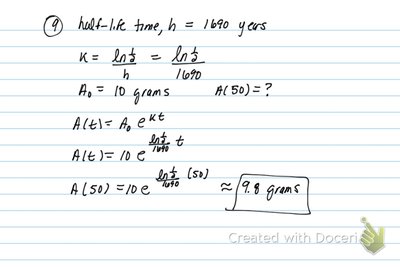 ⑨ half-life time, h = 1690 years
K = ln ½ / h = ln ½ / 1690
A₀ = 10 grams A(50) = ?
A(t) = A₀ e^(kt)
A(t) = 10 e^(ln ½ / 1690 t)
A(50) = 10 e^(ln ½ / 1690 (50)) ≈ 9.8 grams
Created with Doceri